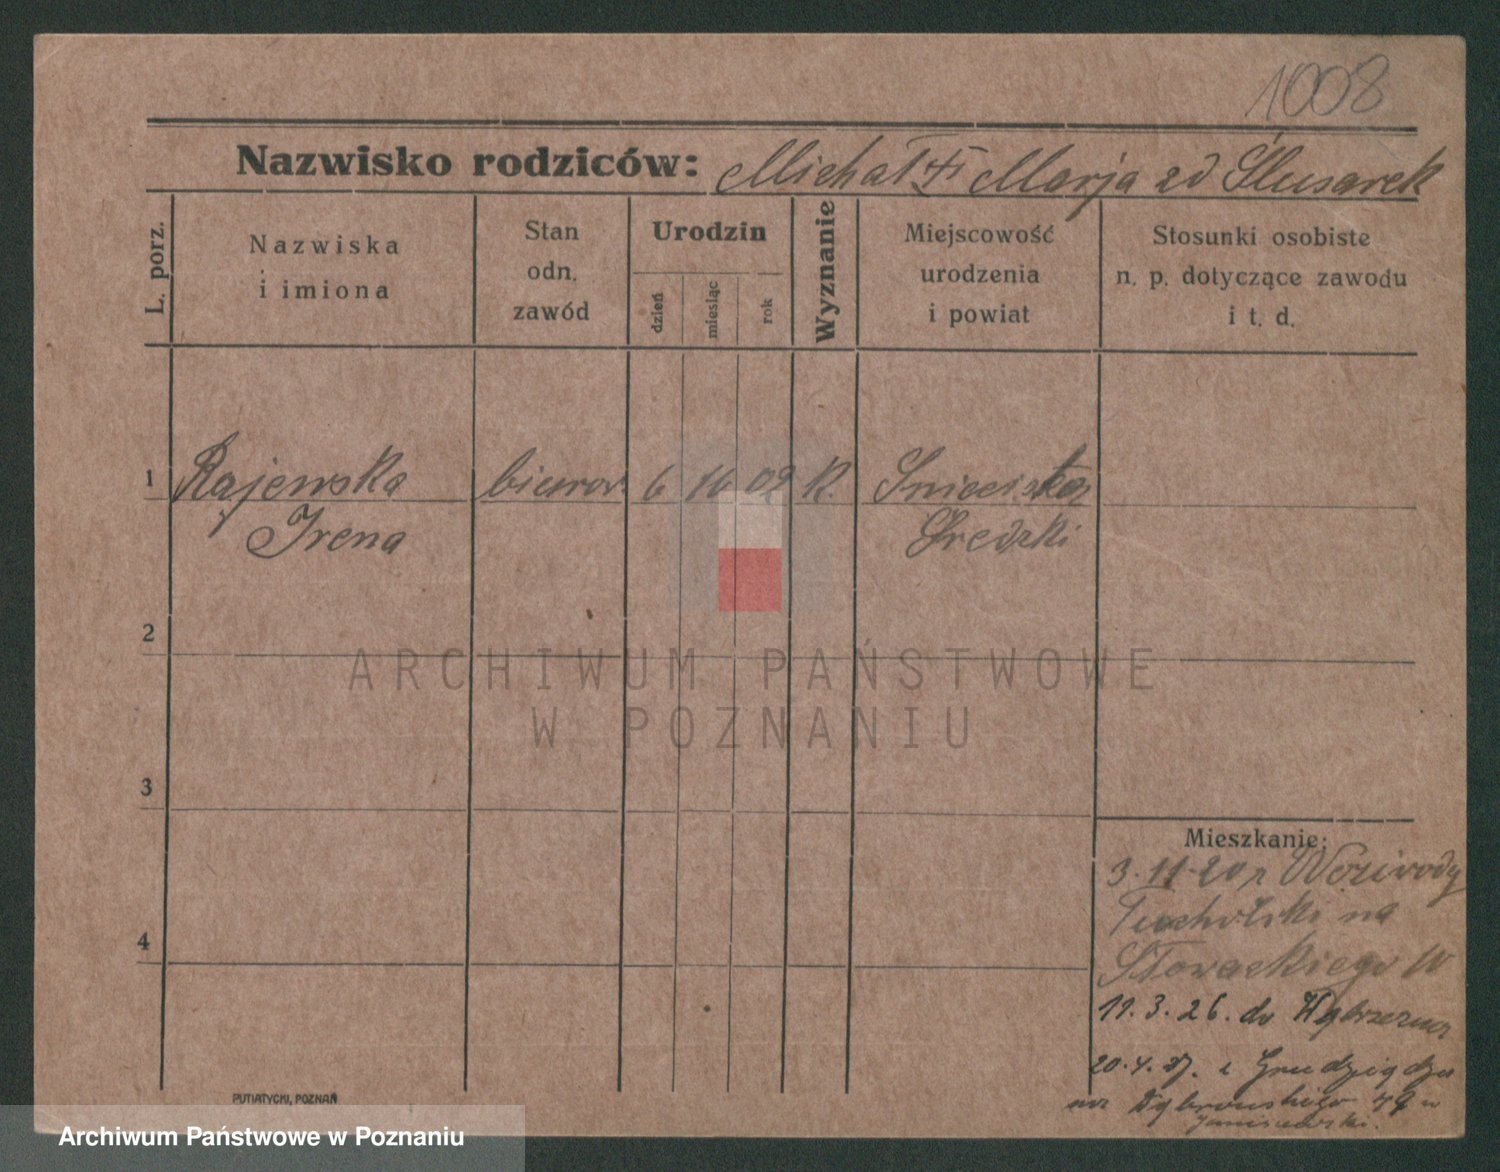 1008
Nazwisko rodziców: Michał + Marja zd Ślusarek
L. porz.
Nazwiska
i imiona
Stan
odn.
zawód
Urodzin
dzień
miesiąc
rok
Wyznanie
Miejscowość
urodzenia
i powiat
Stosunki osobiste
n. p. dotyczące zawodu
i t. d.
1 Rajewska biurow. 6 10 02 K.
Irena Średzki
2
ARCHIWUM PAŃSTWOWE
W POZNANIU
3
Mieszkanie:
3.11.20 z
Tucholski na
Słowackiego
4
11.3.26. do Wąbrzezna
20.4. z Grudziądza
na Dąbrowskiego 49 u
Janiszewski.
PUTIATYCKI, POZNAŃ
Archiwum Państwowe w Poznaniu